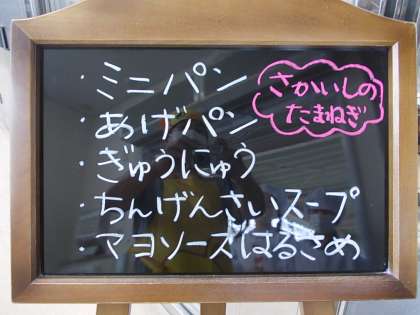 ・ミニパン
・あげパン
・ぎゅうにゅう
・ちんげんさいスープ
・マヨソーズはるさめ
さかいしの
たまねぎ